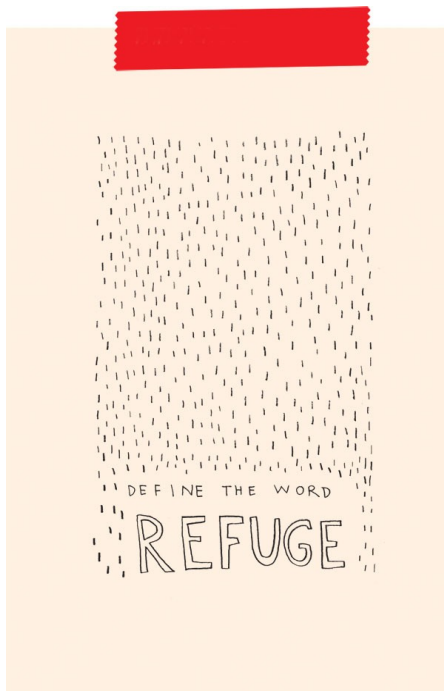 DEFINE THE WORD
REFUGE